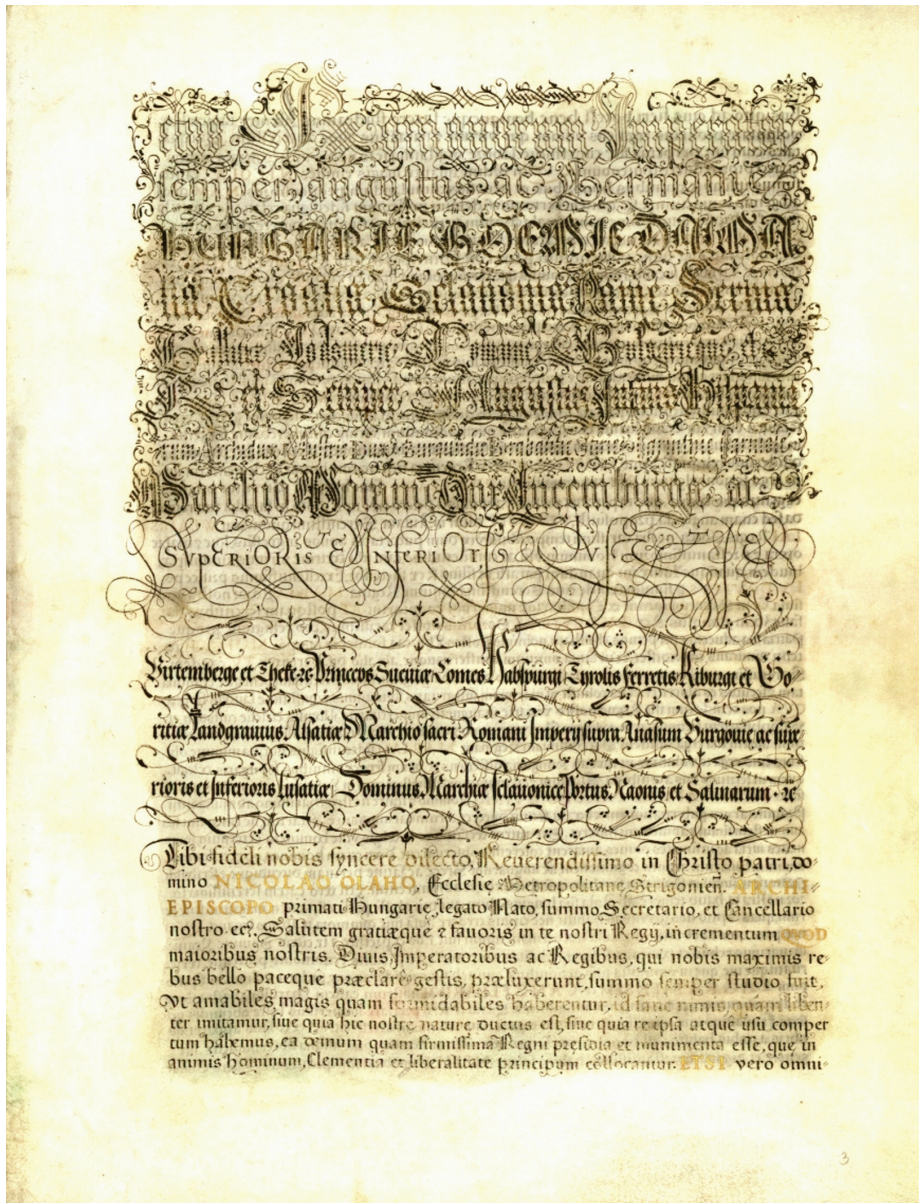 semper augustus ac Germaniæ
HUNGARIE BOEMIE DALMA
tiæ Croatiæ Sclavoniæ Rame Servie
et Semper Augustus Infans Hispania
rum Archidux Austrie Dux Burgundie Brabantie Stirie Carintie Carniole
Marchio Moravie Dux Lucemburgæ ac
SVPERIORIS E INFERIORIS
Virtemberge et Theke zc Princeps Sueviæ Comes Habspurgi Tyrolis ferretis Kiburgi et Go/
ritiæ Landgravius Alsatiæ Marchio sacri Romani Imperij supra Anasum Burgovie ac supe
rioris et Inferioris Lusatiæ Dominus Marchiæ sclavonice Portus Naonis et Salinarum · zc
Tibi fideli nobis syncere dilecto, Reuerendissimo in Christo patri, do-
mino NICOLAO OLAHO, Ecclesie Metropolitane Strigonien̄. ARCHI-
EPISCOPO primati Hungarie, legato Nato, summo Secretario, et Cancellario
nostro ec̃, Salutem gratiæque & fauoris in te nostri Regij, incrementum QVOD
maioribus nostris. Diuis Imperatoribus ac Regibus, qui nobis maximis re-
bus bello paceque præclare gestis, præluxerunt, summo semper studio fuit,
Vt amabiles magis quam formidabiles haberentur, id sane nimis quam liben-
ter imitamur, siue quia hic nostre nature ductus est, siue quia re ipsa atque usu comper
tum habemus, ea demum quam firmissima Regni presidia et munimenta esse, que in
animis hominum, Clementia et liberalitate principum collocantur. ETSI vero omni-
3